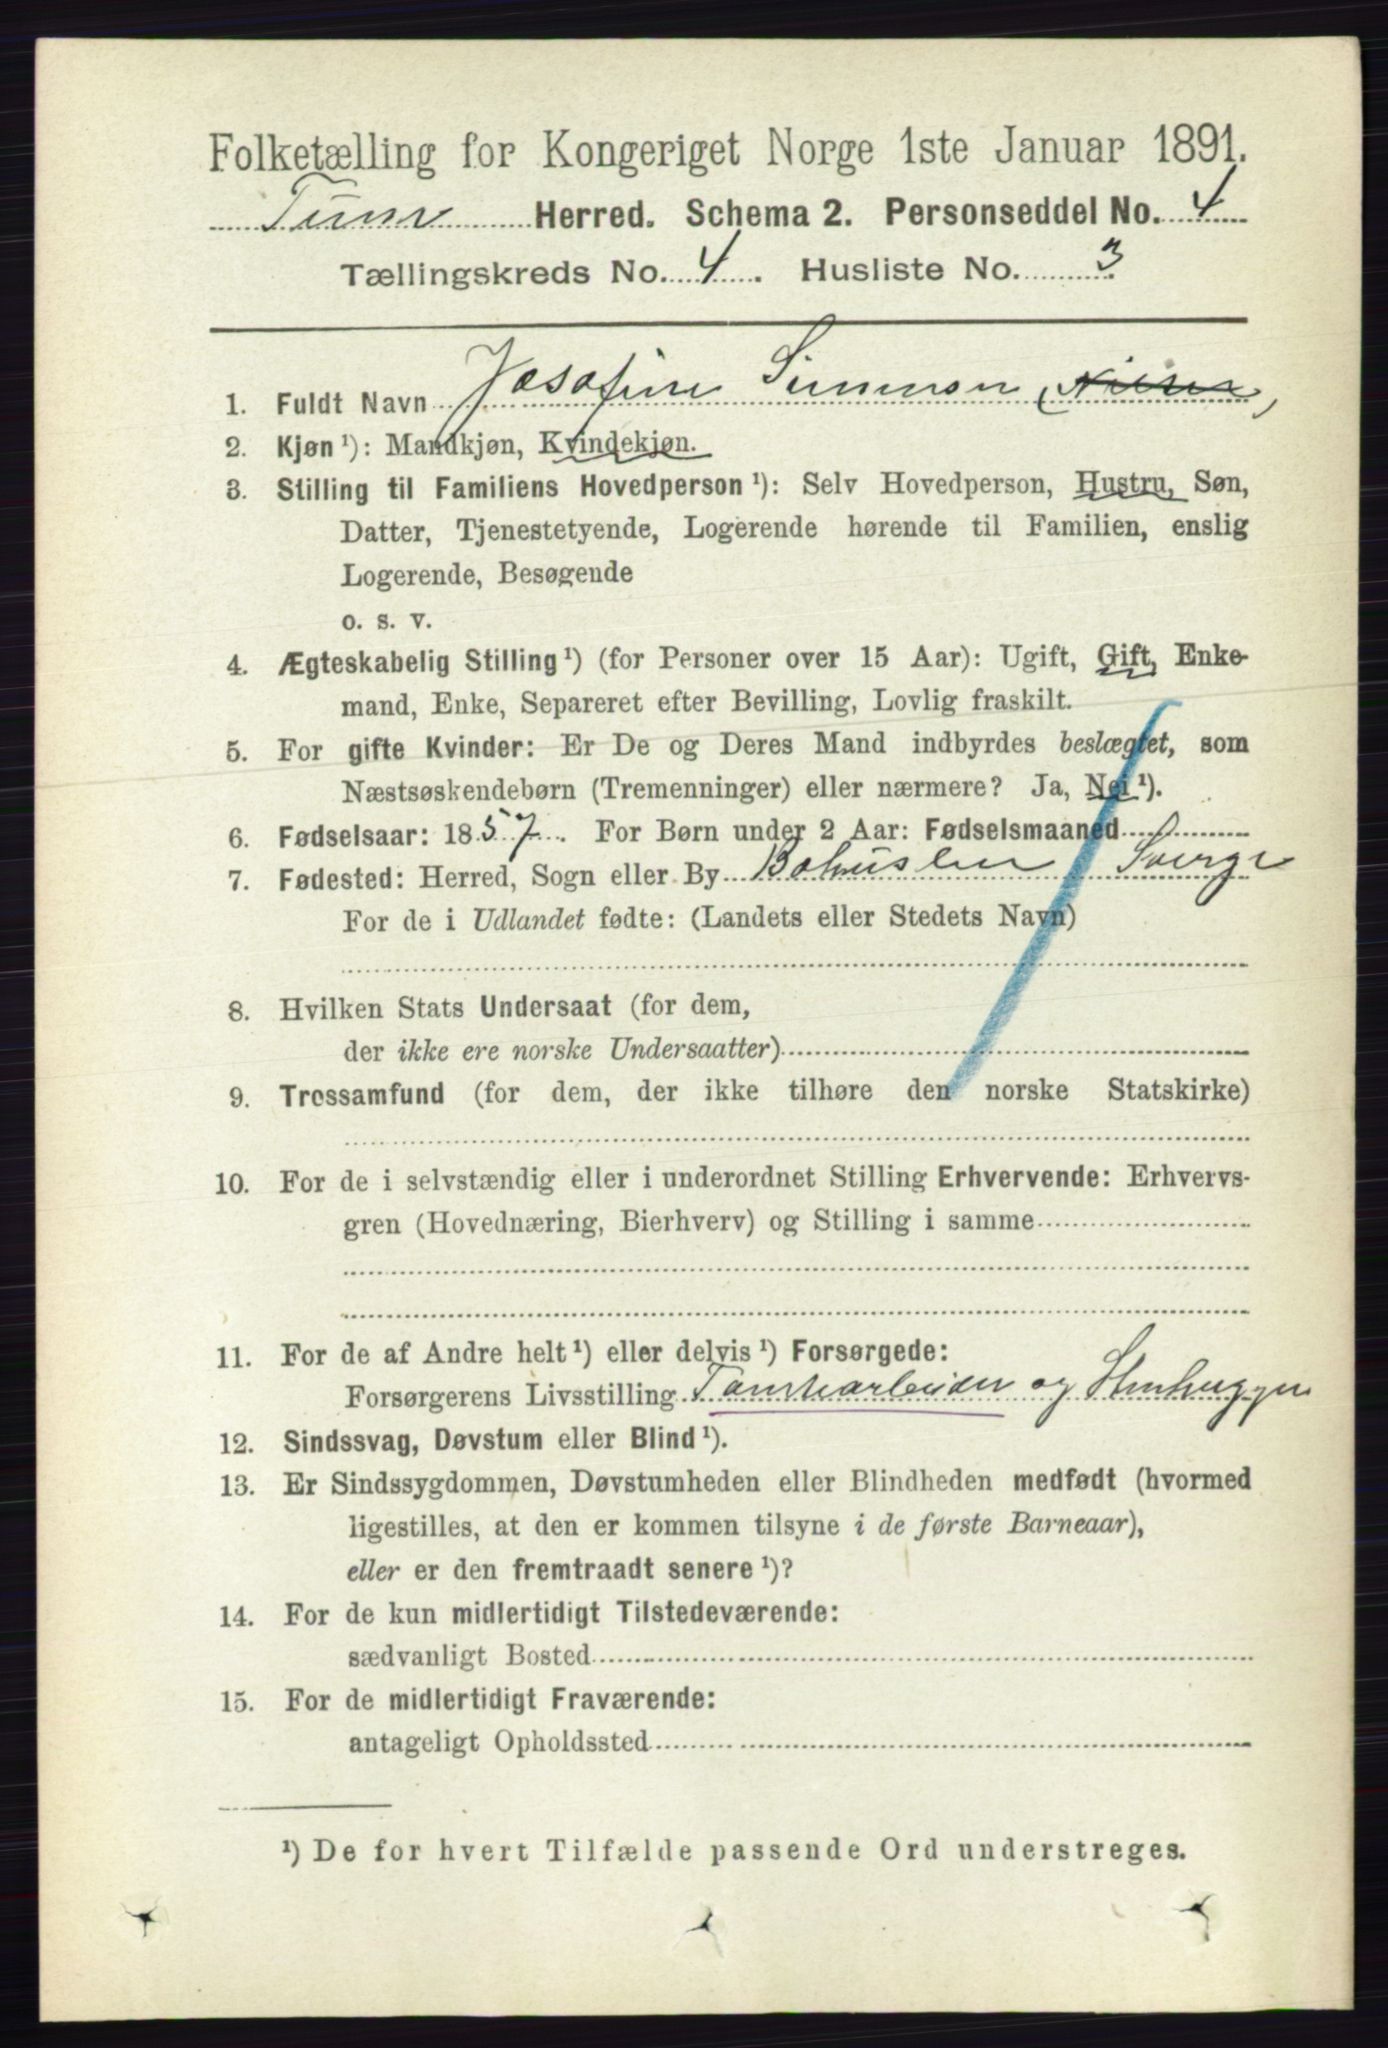 Folketælling for Kongeriget Norge 1ste Januar 1891.
Tune Herred. Schema 2. Personseddel No. 4
Tællingskreds No. 4. Husliste No. 3
1. Fuldt Navn Josefine Simensen
2. Kjøn ¹): Mandkjøn, Kvindekjøn.
3. Stilling til Familiens Hovedperson ¹): Selv Hovedperson, Hustru, Søn,
Datter, Tjenestetyende, Logerende hørende til Familien, enslig
Logerende, Besøgende
o. s. v.
4. Ægteskabelig Stilling ¹) (for Personer over 15 Aar): Ugift, Gift, Enke-
mand, Enke, Separeret efter Bevilling, Lovlig fraskilt.
5. For gifte Kvinder: Er De og Deres Mand indbyrdes beslægtet, som
Næstsøskendebørn (Tremenninger) eller nærmere? Ja, Nei ¹).
6. Fødselsaar: 1857. For Børn under 2 Aar: Fødselsmaaned
7. Fødested: Herred, Sogn eller By Bohuslen Sverge
For de i Udlandet fødte: (Landets eller Stedets Navn)
8. Hvilken Stats Undersaat (for dem,
der ikke ere norske Undersaatter)
9. Trossamfund (for dem, der ikke tilhøre den norske Statskirke)
10. For de i selvstændig eller i underordnet Stilling Erhvervende: Erhvervs-
gren (Hovednæring, Bierhverv) og Stilling i samme
11. For de af Andre helt ¹) eller delvis ¹) Forsørgede:
Forsørgerens Livsstilling Tomtearbeider og Stenhugger
12. Sindssvag, Døvstum eller Blind ¹).
13. Er Sindssygdommen, Døvstumheden eller Blindheden medfødt (hvormed
ligestilles, at den er kommen tilsyne i de første Barneaar),
eller er den fremtraadt senere ¹)?
14. For de kun midlertidigt Tilstedeværende:
sædvanligt Bosted
15. For de midlertidigt Fraværende:
antageligt Opholdssted
¹) De for hvert Tilfælde passende Ord understreges.